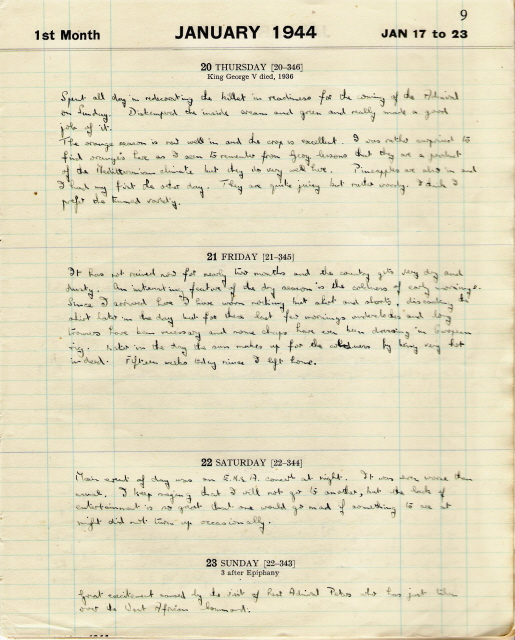 9
1st Month JANUARY 1944 JAN 17 to 23
20 THURSDAY [20-346]
King George V died, 1936
Spent all day in redecorating the billet in readiness for the coming of the Admiral
on Sunday. Distempered the inside cream and green and really made a good
job of it.
The orange season is now well in and the crop is excellent. I was rather surprised to
find oranges here as I seem to remember from Geog lessons that they are a product
of the Mediterranean climate but they do very well here. Pineapples are also in and
I had my first the other day. They are quite juicy but rather woody. I think I
prefer the tinned variety.
21 FRIDAY [21-345]
It has not rained now for nearly two months and the country gets very dry and
dusty. An interesting feature of the dry season is the coldness of early mornings.
Since I arrived here I have worn nothing but shirt and shorts, discarding the
shirt later in the day but for these last few mornings underclothes and long
trousers have been necessary and some chaps have even been dressing in European
rig. Later in the day the sun makes up for the coldness by being very hot
indeed. Fifteen weeks today since I left home.
22 SATURDAY [22-344]
Main event of day was an E.N.S.A. concert at night. It was even worse than
usual. I keep saying that I will not go to another, but the lack of
entertainment is so great that one would go mad if something to see at
night did not turn up occasionally.
23 SUNDAY [22-343]
3 after Epiphany
Great excitement caused by the visit of Rear Admiral Peters who has just taken
over the West African Command.